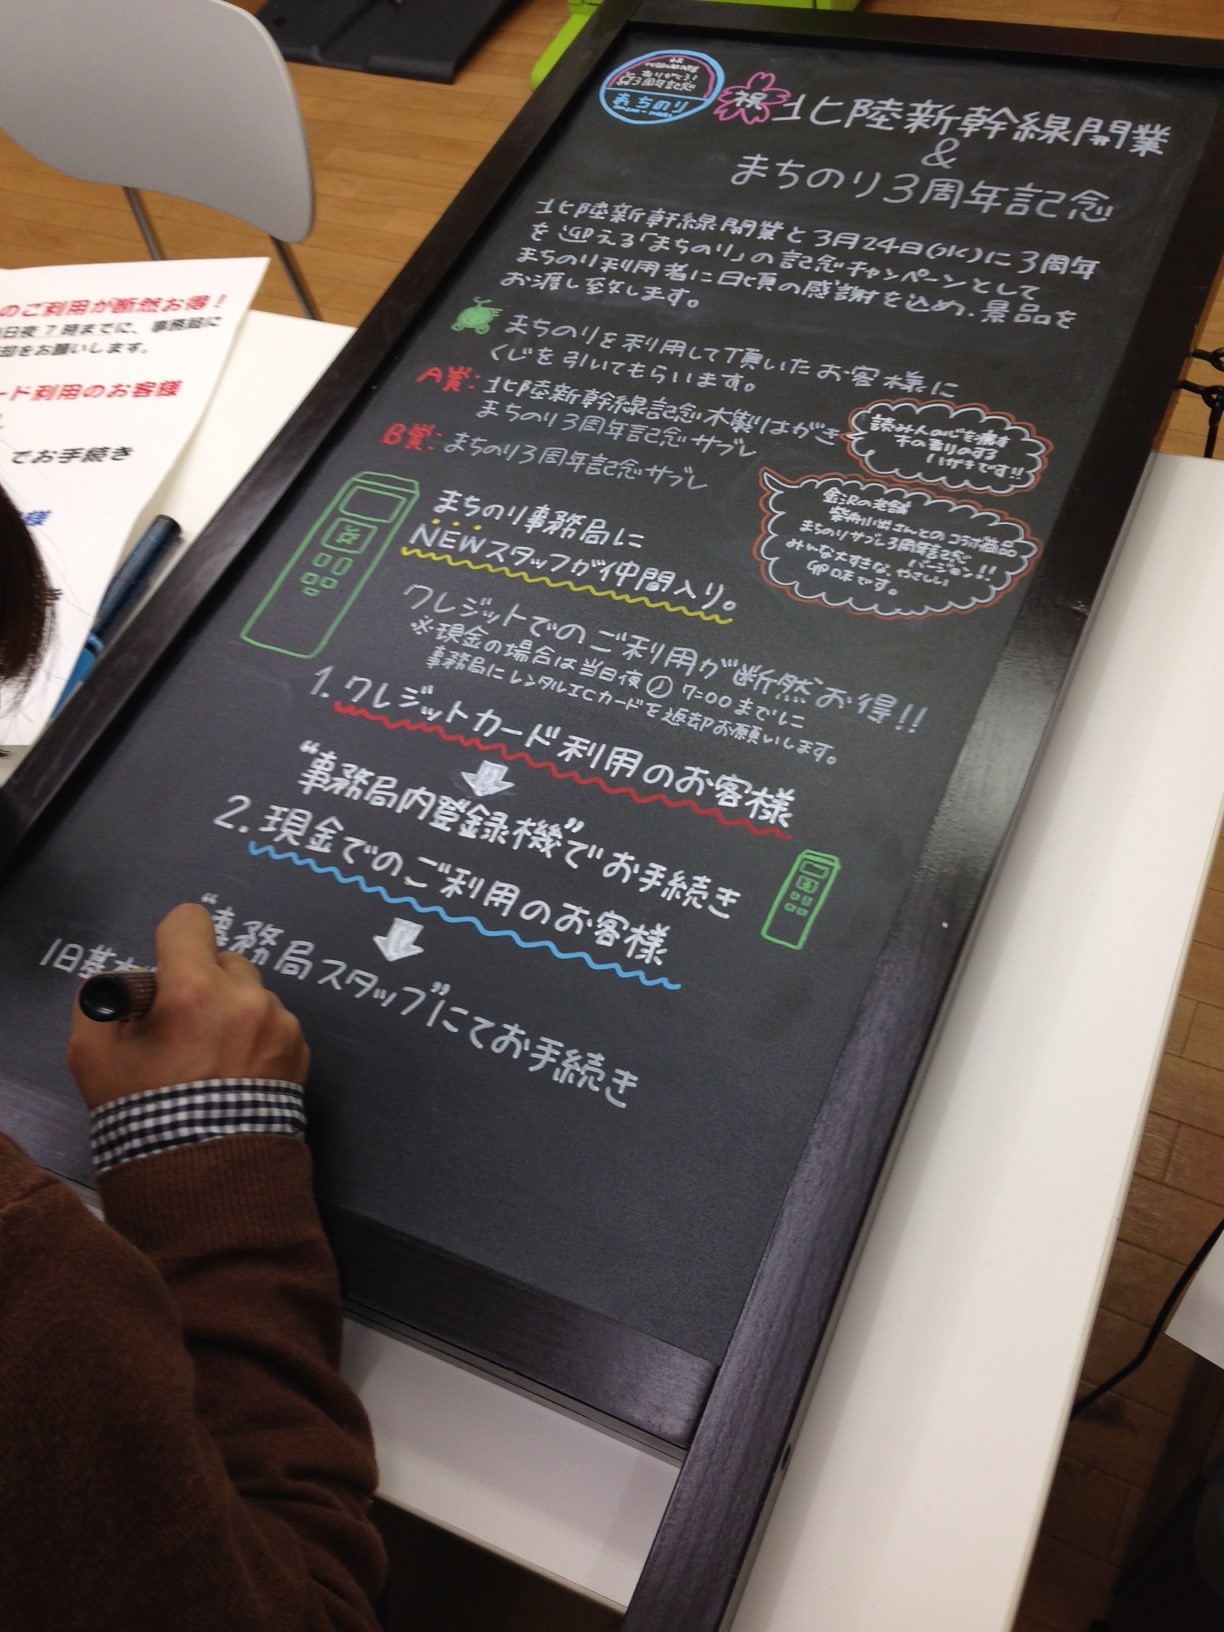 まちのり
祝 北陸新幹線開業
&
まちのり3周年記念
北陸新幹線開業と3月24日(水)に3周年
を迎える「まちのり」の記念キャンペーンとして
まちのり利用者に日頃の感謝を込め、景品を
お渡し致します。
まちのりを利用して頂いたお客様に
くじを引いてもらいます。
A賞: 北陸新幹線記念木製はがき
まちのり3周年記念サブレ
B賞: まちのり3周年記念サブレ
読み人の心を癒す
木の香りのする
ハガキです!!
金沢の老舗
柴舟小出さんとのコラボ商品
まちのりサブレ3周年記念
バージョン!!
みんな大すきな、やさしい
味です。
まちのり事務局に
NEWスタッフが仲間入り。
クレジットでのご利用が断然お得!!
※現金の場合は当日夜7:00までに
事務局にレンタルICカードを返却お願いします。
1. クレジットカード利用のお客様
"事務局内登録機"でお手続き
2. 現金でのご利用のお客様
"事務局スタッフ"にてお手続き
旧基本
のご利用が断然お得!
日夜7時までに、事務局に
却をお願いします。
ード利用のお客様
でお手続き
様